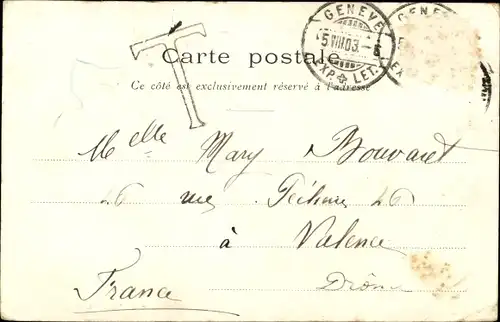 GENEVE
5 VIII 03. — 5
EXP. LET.
GENEVE
EX
T
Carte postale
Ce côté est exclusivement réservé à l'adresse
Melle Mary Bouvaret
26 rue 26
à Valence
France Drôme